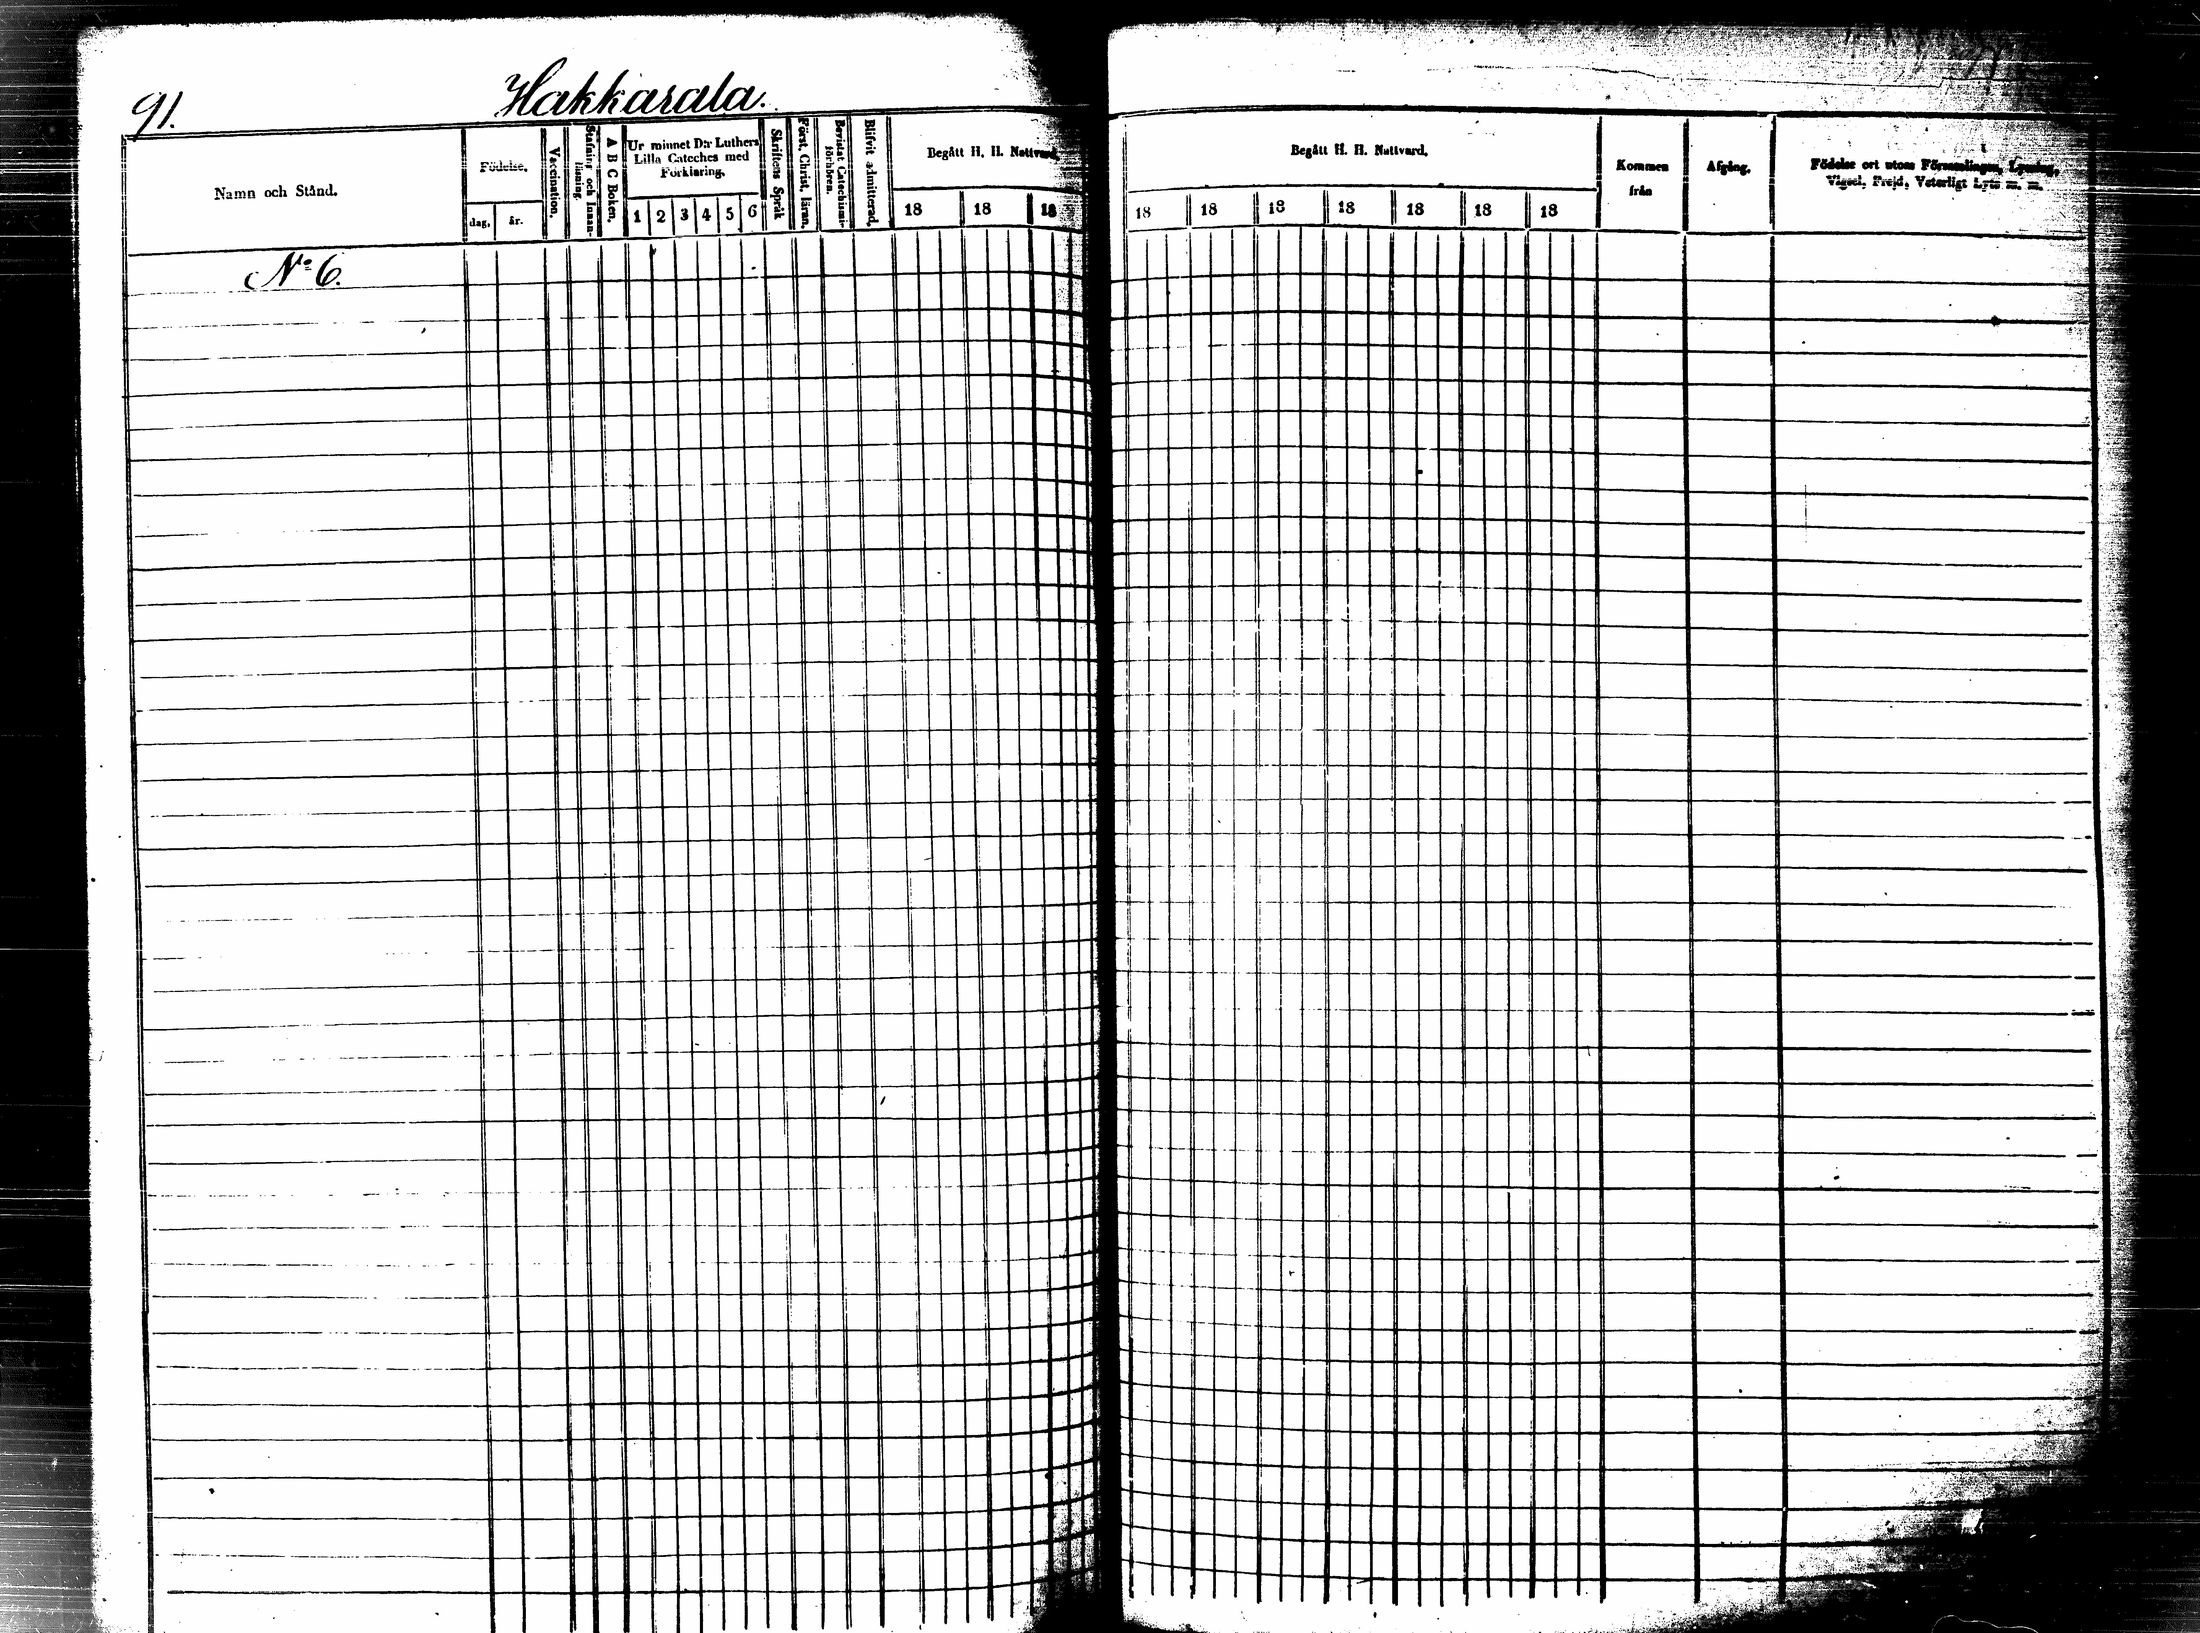 91.
Hakkarala.
Namn och Stånd.
Födelse.
dag.
år.
Vaccination.
Stafning och Innan-
läsning.
A B C Boken.
Ur minnet D:r Luthers
Lilla Cateches med
Förklaring.
1 2 3 4 5 6
Skriftens Språk
Först. Christ. läran.
Bevistat Catechismi-
förhören.
Blifvit admitterad.
Begått H. H. Nattvard.
18 18 18
Begått H. H. Nattvard.
18 18 18 18 18 18 18
Kommen
från
Afgång.
Födelse ort utom Församlingen, Lysning,
Vigsel, Frejd, Veterligt Lyte m. m.
No 6.